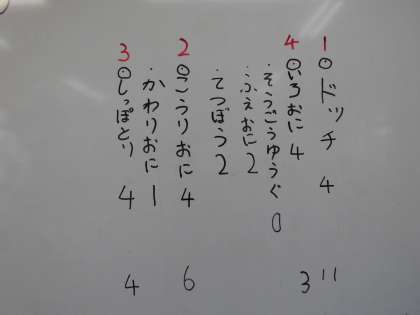 1 ⊙ドッチ 4 11
4 ⊙いろおに 4 3
・そうごうゆうぐ 0
・ふえおに 2
・てつぼう 2
2 ⊙こうりおに 4 6
・かわりおに 1
3 ⊙しっぽとり 4 4